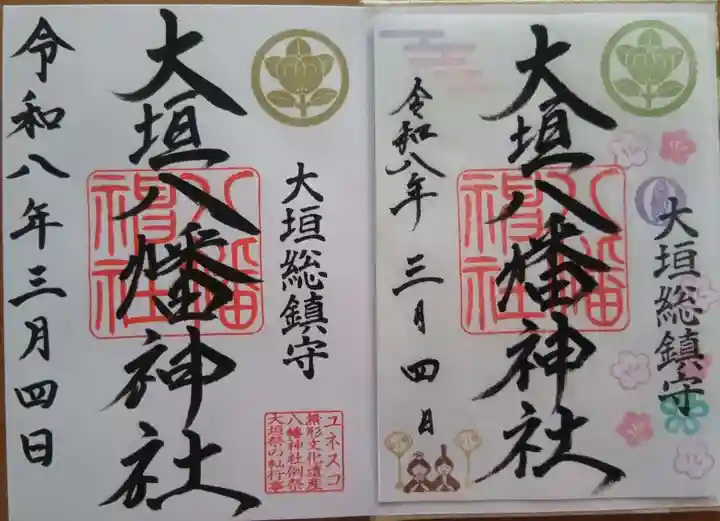 大垣総鎮守
大垣八幡神社
八幡神社
令和八年三月四日
ユネスコ
無形文化遺産
八幡神社例祭
大垣祭の軕行事
大垣総鎮守
大垣八幡神社
八幡神社
令和八年三月四日